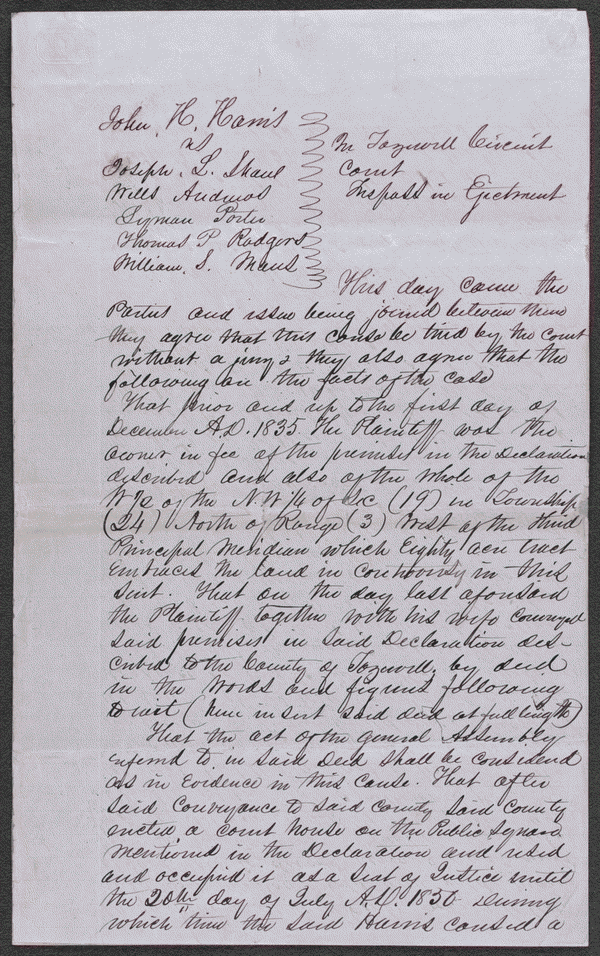 John, H. Harris
vs
Joseph, L. Shaw
Wells Andrews
Lyman Porter
Thomas P Rodgers
William, S. Maus
In Tazewell Circuit
Court
Trespass in Ejectment
This day came the
Parties and issue being joined between them
they agree that this cause be tried by the court
without a jury & they also agree that the
following are the facts of the case
That prior and up to the first day of
December A.D. 1835 the Plaintiff was the
owner in fee of the premises in the Declaration
described and also of the whole of the
W/2 of the N.W/4 of Sec (19) in Township
(24) North of Range (3) West of the third
Principal Meridian which Eighty acre tract
Embraces the land in controversy in this
suit. That on the day last aforesaid
the Plaintiff together with his wife conveyed
said premises in said Declaration des-
cribed to the County of Tazewell, by deed
in the words and figures following
to wit (here insert said deed at full length)
That the act of the general Assembly
referred to in said Deed shall be considered
as in Evidence in this cause. That after
said Conveyance to said County said County
erected a court house on the Public Square
mentioned in the Declaration and used
and occupied it as a seat of Justice until
the 20th day of July A.D. 1850 During
which time the said Harris caused a